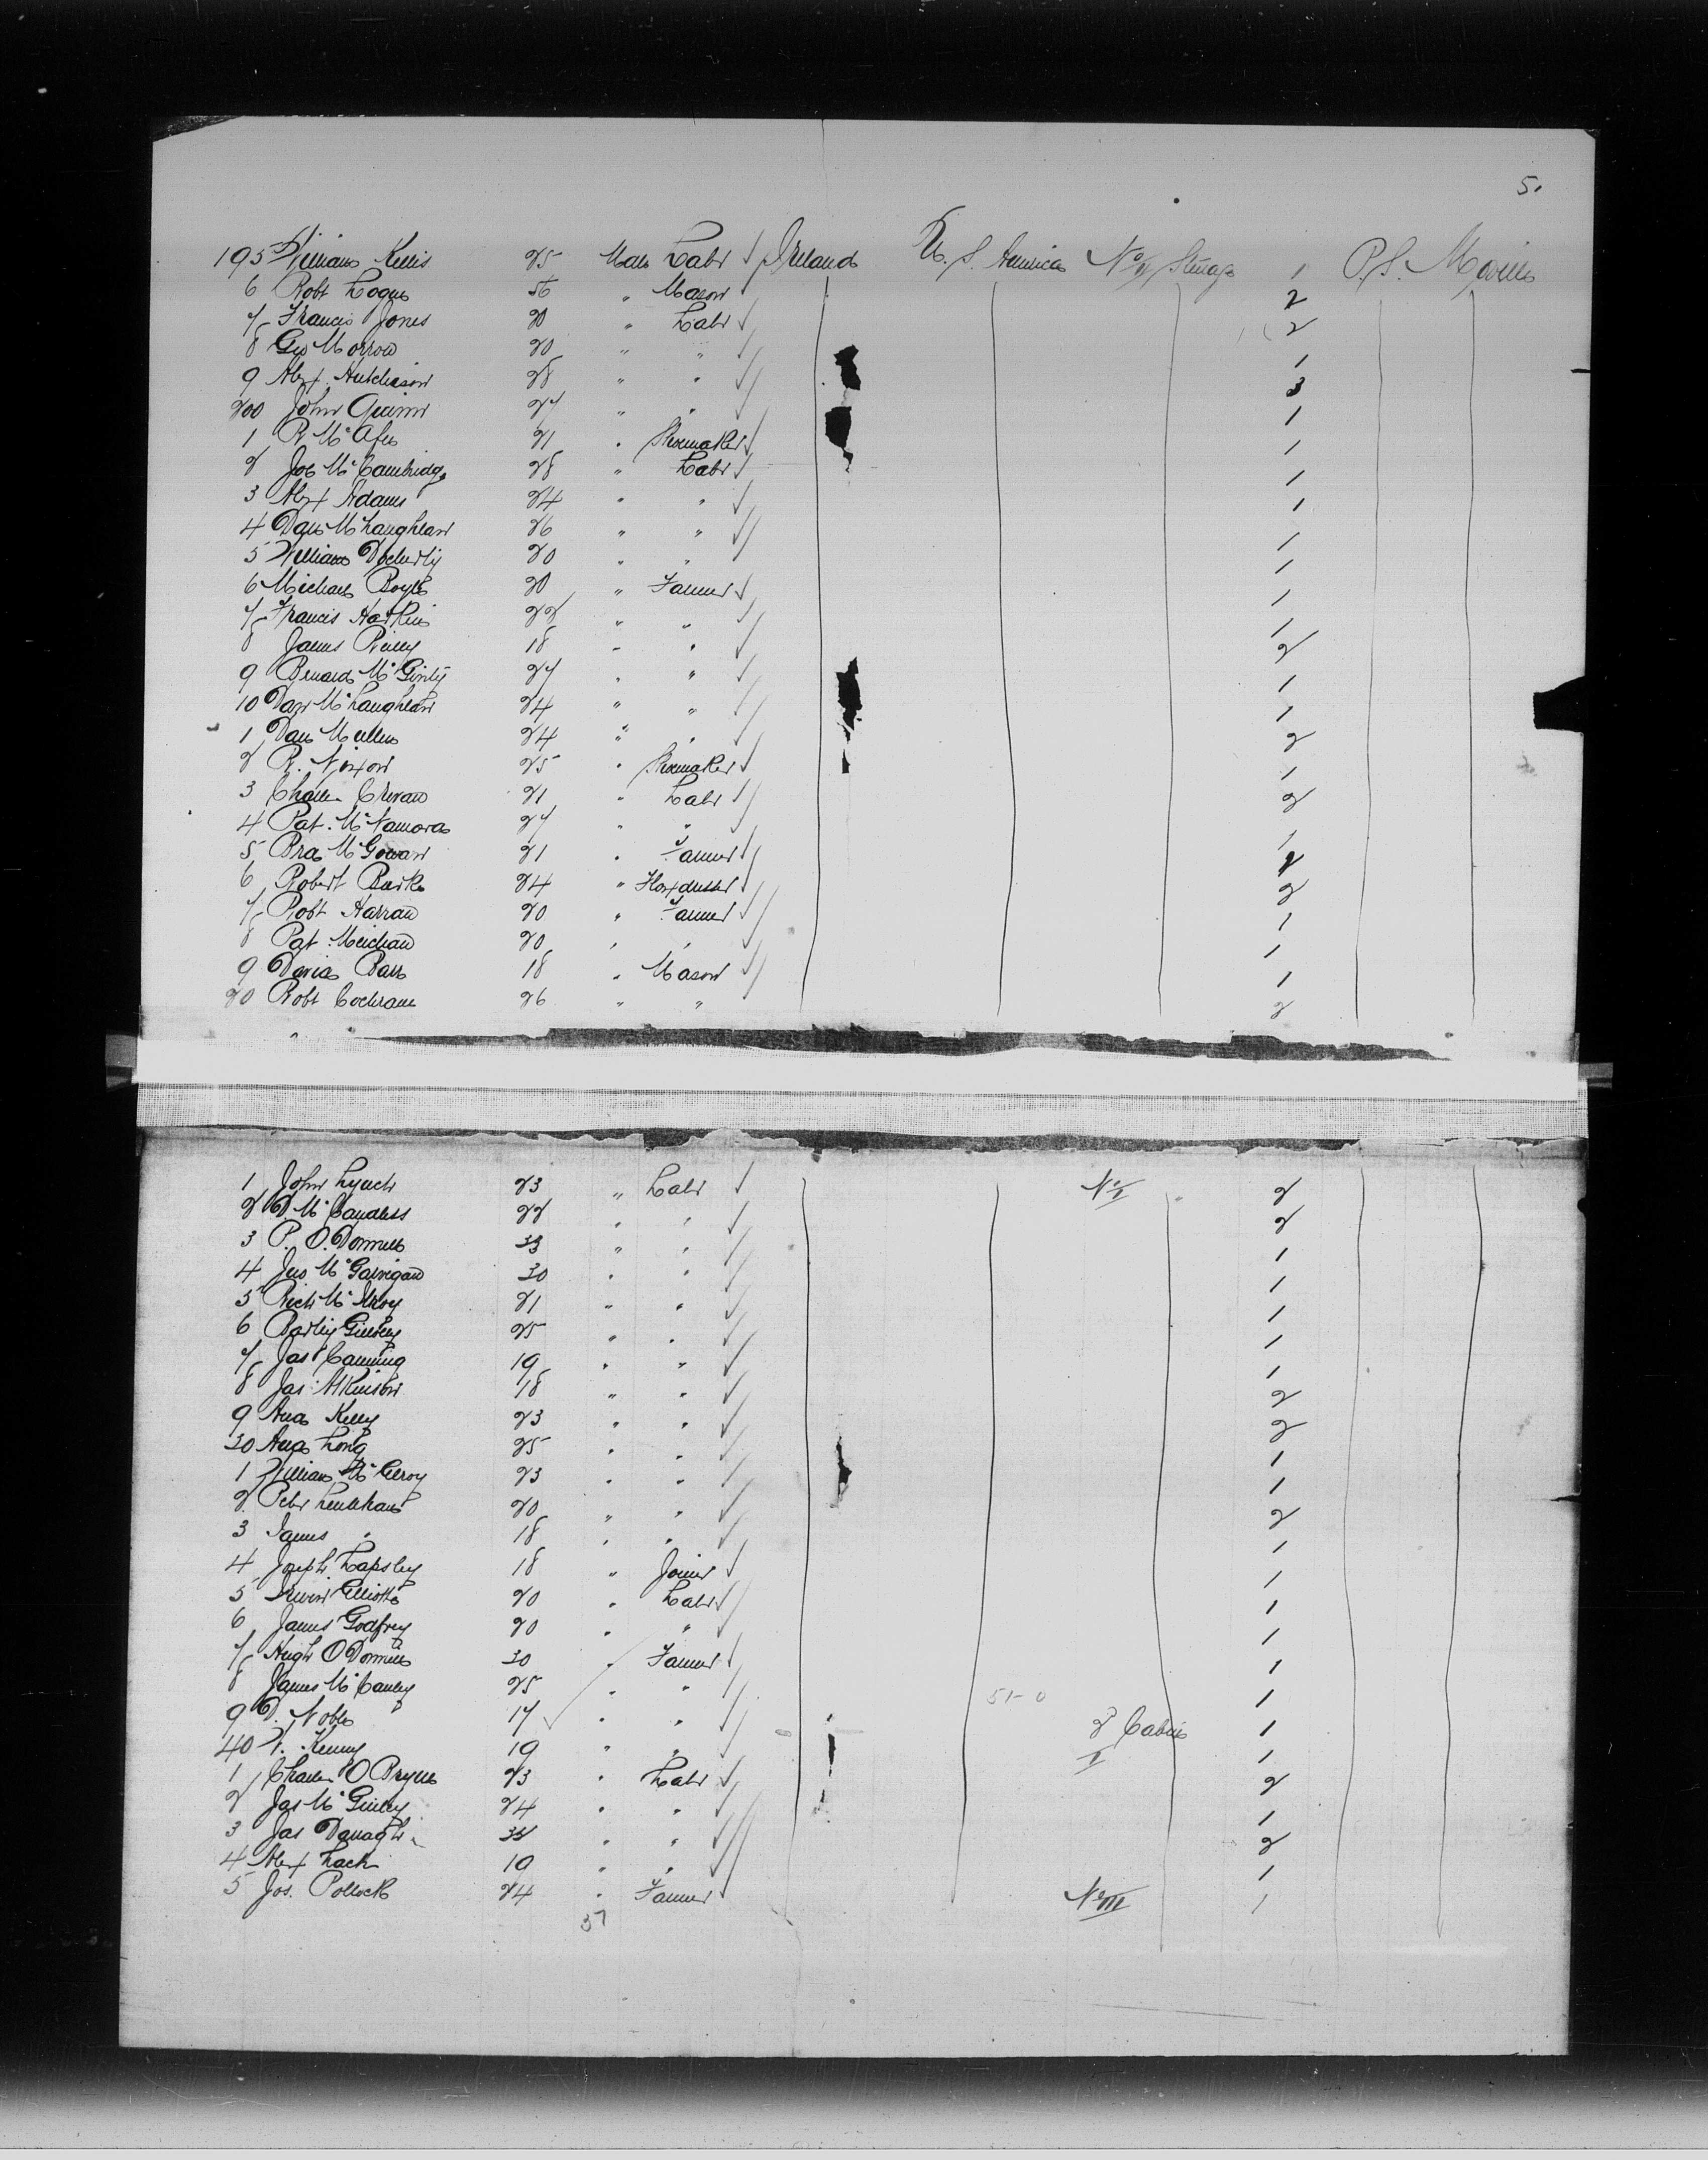 5.
195 William Kellis 25 Male Labr Ireland U. S. America No II Steerage 1 P.S. Moville
6 Robt Logue 56 " Mason 2
7 Francis Jones 20 " Labr 2
8 Geo Morrow 20 " " 1
9 Alex Hutchison 28 " " 3
200 John Quinn 27 " " 1
1 R McAfee 21 " Shoemaker 1
2 Jos McCambridge 28 " Labr 1
3 Alex Adams 24 " " 1
4 Danl McLaughlan 26 " " 1
5 William Docherty 20 " " 1
6 Michael Boyle 20 " Farmer 1
7 Francis Harkin 22 " " 1
8 James Reilly 18 " " 2
9 Benard McGinty 27 " " 1
10 Dan McLaughlan 24 " " 1
1 Danl Mullen 24 " " 2
2 R. Nixon 25 " Shoemaker 1
3 Charles 21 " Labr 2
4 Pat. McNamora 27 " " 1
5 McGowan 21 " Farmer
6 Robert Burke 24 " Flaxdresser 2
7 Robt Harran 20 " Farmer 1
8 Pat Meichan 20 " " 1
9 David Barr 18 " Mason 1
20 Robt Cochrane 26 " " 2
1 John Lynch 23 " Labr No I " 2
2 D McCandless 22 " " 2
3 P. O.Donnell 33 " " 1
4 McGarrigan 30 " " 1
5 Richd McIlroy 21 " " 1
6 Bartley 25 " " 1
7 Jas Canning 19 " " 1
8 Jas Atkinson 18 " " 2
9 Kelly 23 " " 2
30 Long 25 " " 1
1 William McElroy 23 " " 1
2 Peter Lenahan 20 " " 2
3 James " 18 " " 1
4 Joseph Lapsley 18 " Joiner 1
5 Irwin Elliott 20 " Labr 1
6 James Godfrey 20 " " 1
7 Hugh O Donnell 30 " Farmer 1
8 James McCauley 25 " " 1
9 D. Noble 17 " " 2 Cabin 1
40 Kenny 19 " " I 1
1 Charles O Bryne 23 " Labr 2
2 Jas McGinley 24 " " 1
3 Jas Danagh " " 2
4 Alex Lack 19 " " 1
5 Jos. Pollock 24 " Farmer No III 1
37